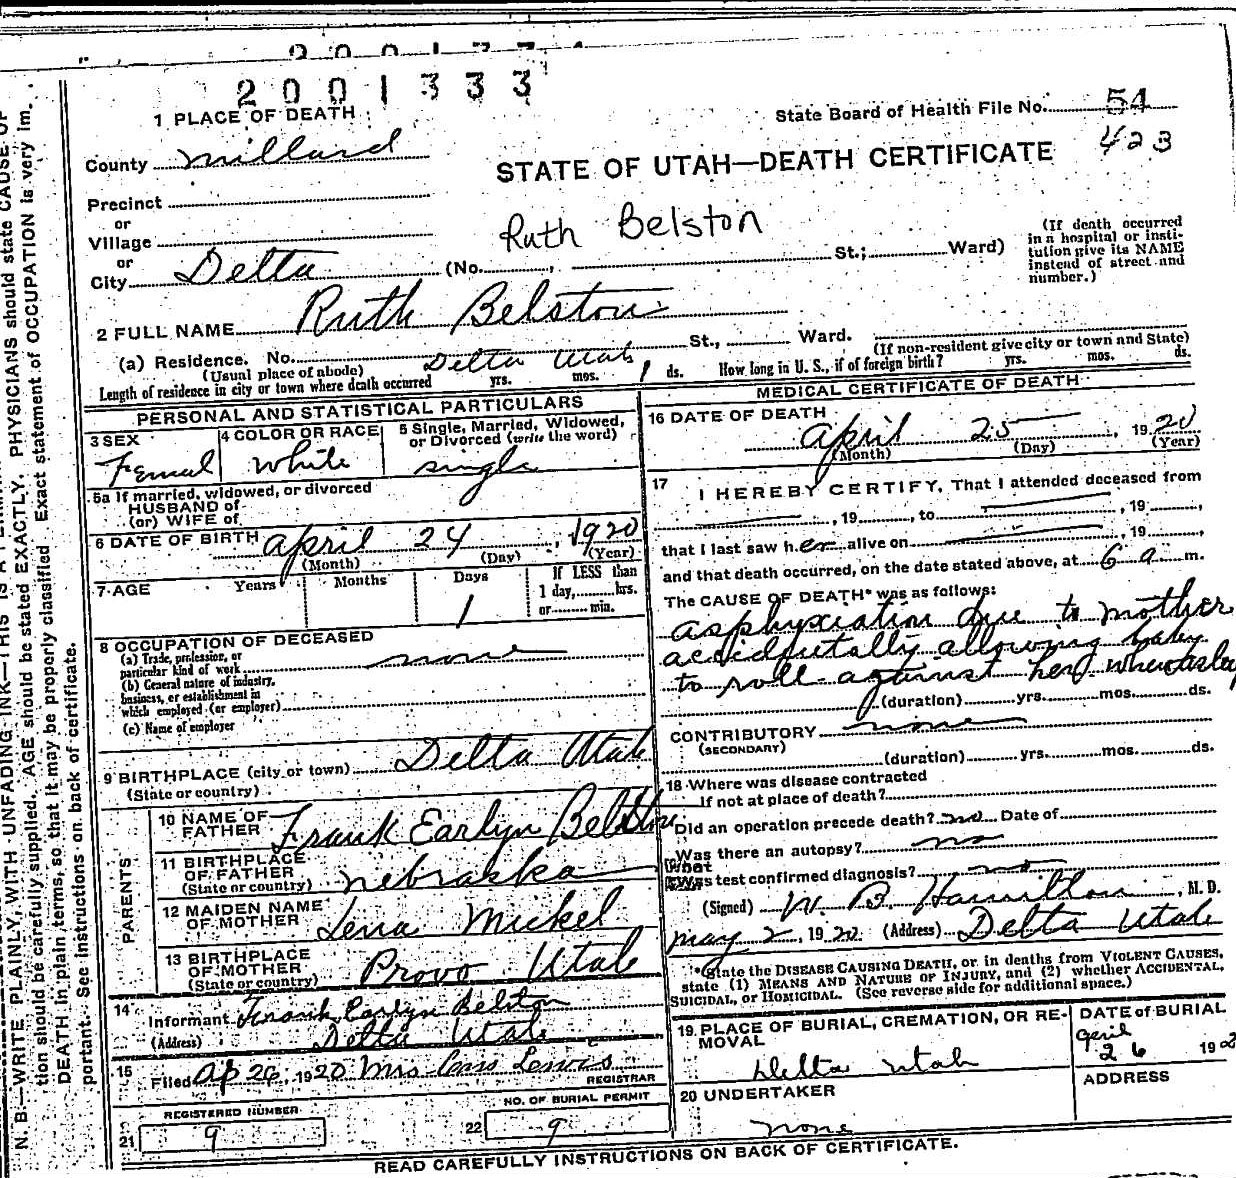 2001333
1 PLACE OF DEATH
State Board of Health File No. 54
423
County Millard
STATE OF UTAH—DEATH CERTIFICATE
Precinct
or
Village
Ruth Belston
or
City Delta (No. , St.; Ward)
(If death occurred
in a hospital or insti-
tution give its NAME
instead of street and
number.)
2 FULL NAME Ruth Belston
(a) Residence. No. Delta Utah St., Ward.
(Usual place of abode)
(If non-resident give city or town and State)
Length of residence in city or town where death occurred yrs. mos. 1 ds. How long in U. S., if of foreign birth? yrs. mos. ds.
PERSONAL AND STATISTICAL PARTICULARS
3 SEX
Femal
4 COLOR OR RACE
White
5 Single, Married, Widowed,
or Divorced (write the word)
single
5a If married, widowed, or divorced
HUSBAND of
(or) WIFE of
6 DATE OF BIRTH April 24, 1920
(Month) (Day) (Year)
7 AGE Years Months Days If LESS than
1 1 day, hrs.
or min.
8 OCCUPATION OF DECEASED
(a) Trade, profession, or
particular kind of work none
(b) General nature of industry,
business, or establishment in
which employed (or employer)
(c) Name of employer
9 BIRTHPLACE (city or town) Delta Utah
(State or country)
PARENTS
10 NAME OF
FATHER Frank Earlyn Belston
11 BIRTHPLACE
OF FATHER
(State or country) Nebraska
12 MAIDEN NAME
OF MOTHER Lena Mickel
13 BIRTHPLACE
OF MOTHER
(State or country) Provo Utah
14
Informant Frank Earlyn Belston
(Address) Delta Utah
15
Filed Ap 26, 1920 Mrs Lewis
REGISTRAR
REGISTERED NUMBER
21 9
NO. OF BURIAL PERMIT
22 9
MEDICAL CERTIFICATE OF DEATH
16 DATE OF DEATH
April 25, 1920
(Month) (Day) (Year)
17
I HEREBY CERTIFY, That I attended deceased from
, 19 , to , 19 ,
that I last saw her alive on , 19 ,
and that death occurred, on the date stated above, at 6 a m.
The CAUSE OF DEATH* was as follows:
asphyxiation due to mother
accidentally allowing baby
to roll against her when asleep
(duration) yrs. mos. ds.
CONTRIBUTORY none
(SECONDARY)
(duration) yrs. mos. ds.
18 Where was disease contracted
If not at place of death?
Did an operation precede death? no Date of
Was there an autopsy? no
What
test confirmed diagnosis? no
(Signed) W. B. Hamilton, M. D.
May 2, 1920 (Address) Delta Utah
*State the DISEASE CAUSING DEATH, or in deaths from VIOLENT CAUSES,
state (1) MEANS AND NATURE OF INJURY, and (2) whether ACCIDENTAL,
SUICIDAL, or HOMICIDAL. (See reverse side for additional space.)
19 PLACE OF BURIAL, CREMATION, OR RE-
MOVAL
Delta Utah
DATE of BURIAL
April
26 192
20 UNDERTAKER
none
ADDRESS
READ CAREFULLY INSTRUCTIONS ON BACK OF CERTIFICATE.
N. B.—WRITE PLAINLY, WITH UNFADING INK—THIS IS A
tion should be carefully supplied. AGE should be stated EXACTLY. PHYSICIANS should state CAUSE OF
DEATH in plain terms, so that it may be properly classified. Exact statement of OCCUPATION is very im-
portant. See instructions on back of certificate.